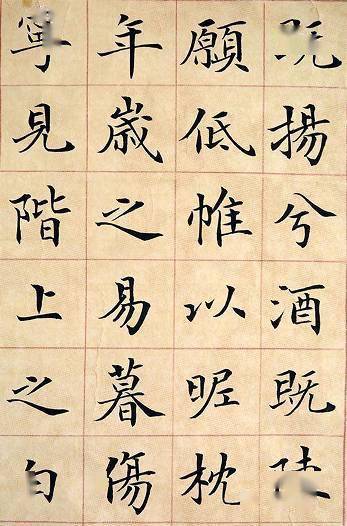 揚兮酒既
願低帷以昵枕
年歲之易暮傷
寧見階上之